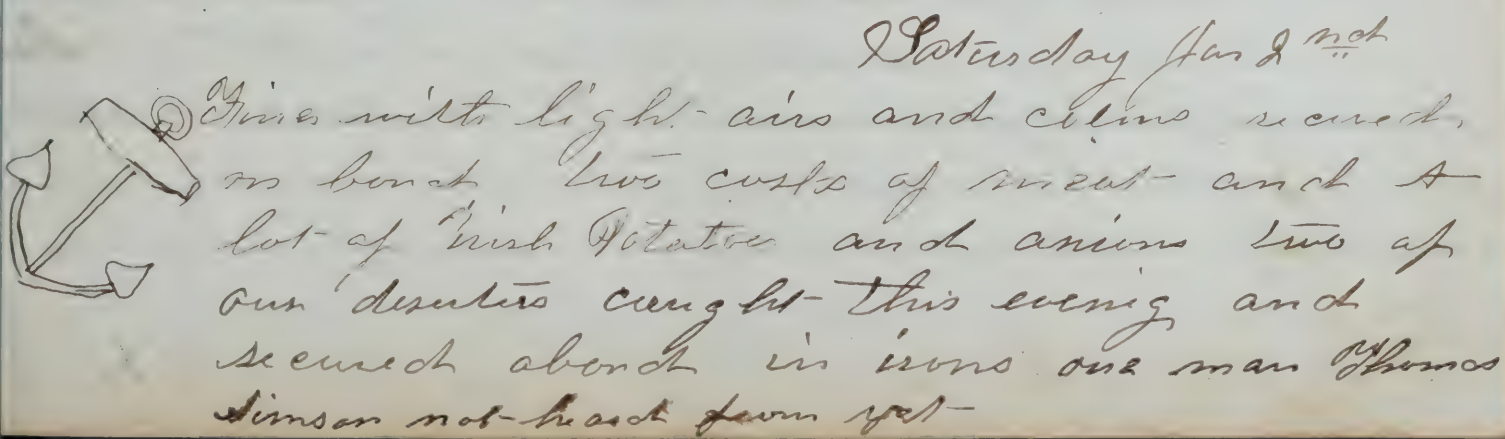 Saturday Jan 2nd
Fine with light airs and calms secured
on bord two casks of meat and A
lot of Irish Potatoes and onions two of
our deserters caught this evenig and
secured abord in irons one man Thomas
Simson not heard from yet